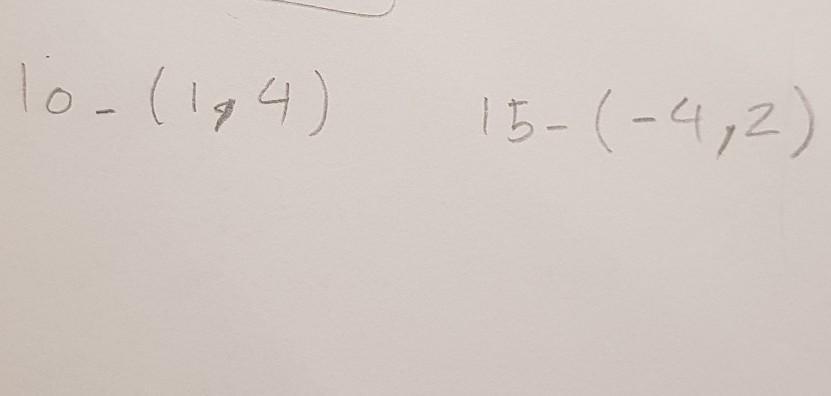 10-(1,4) 15-(-4,2)